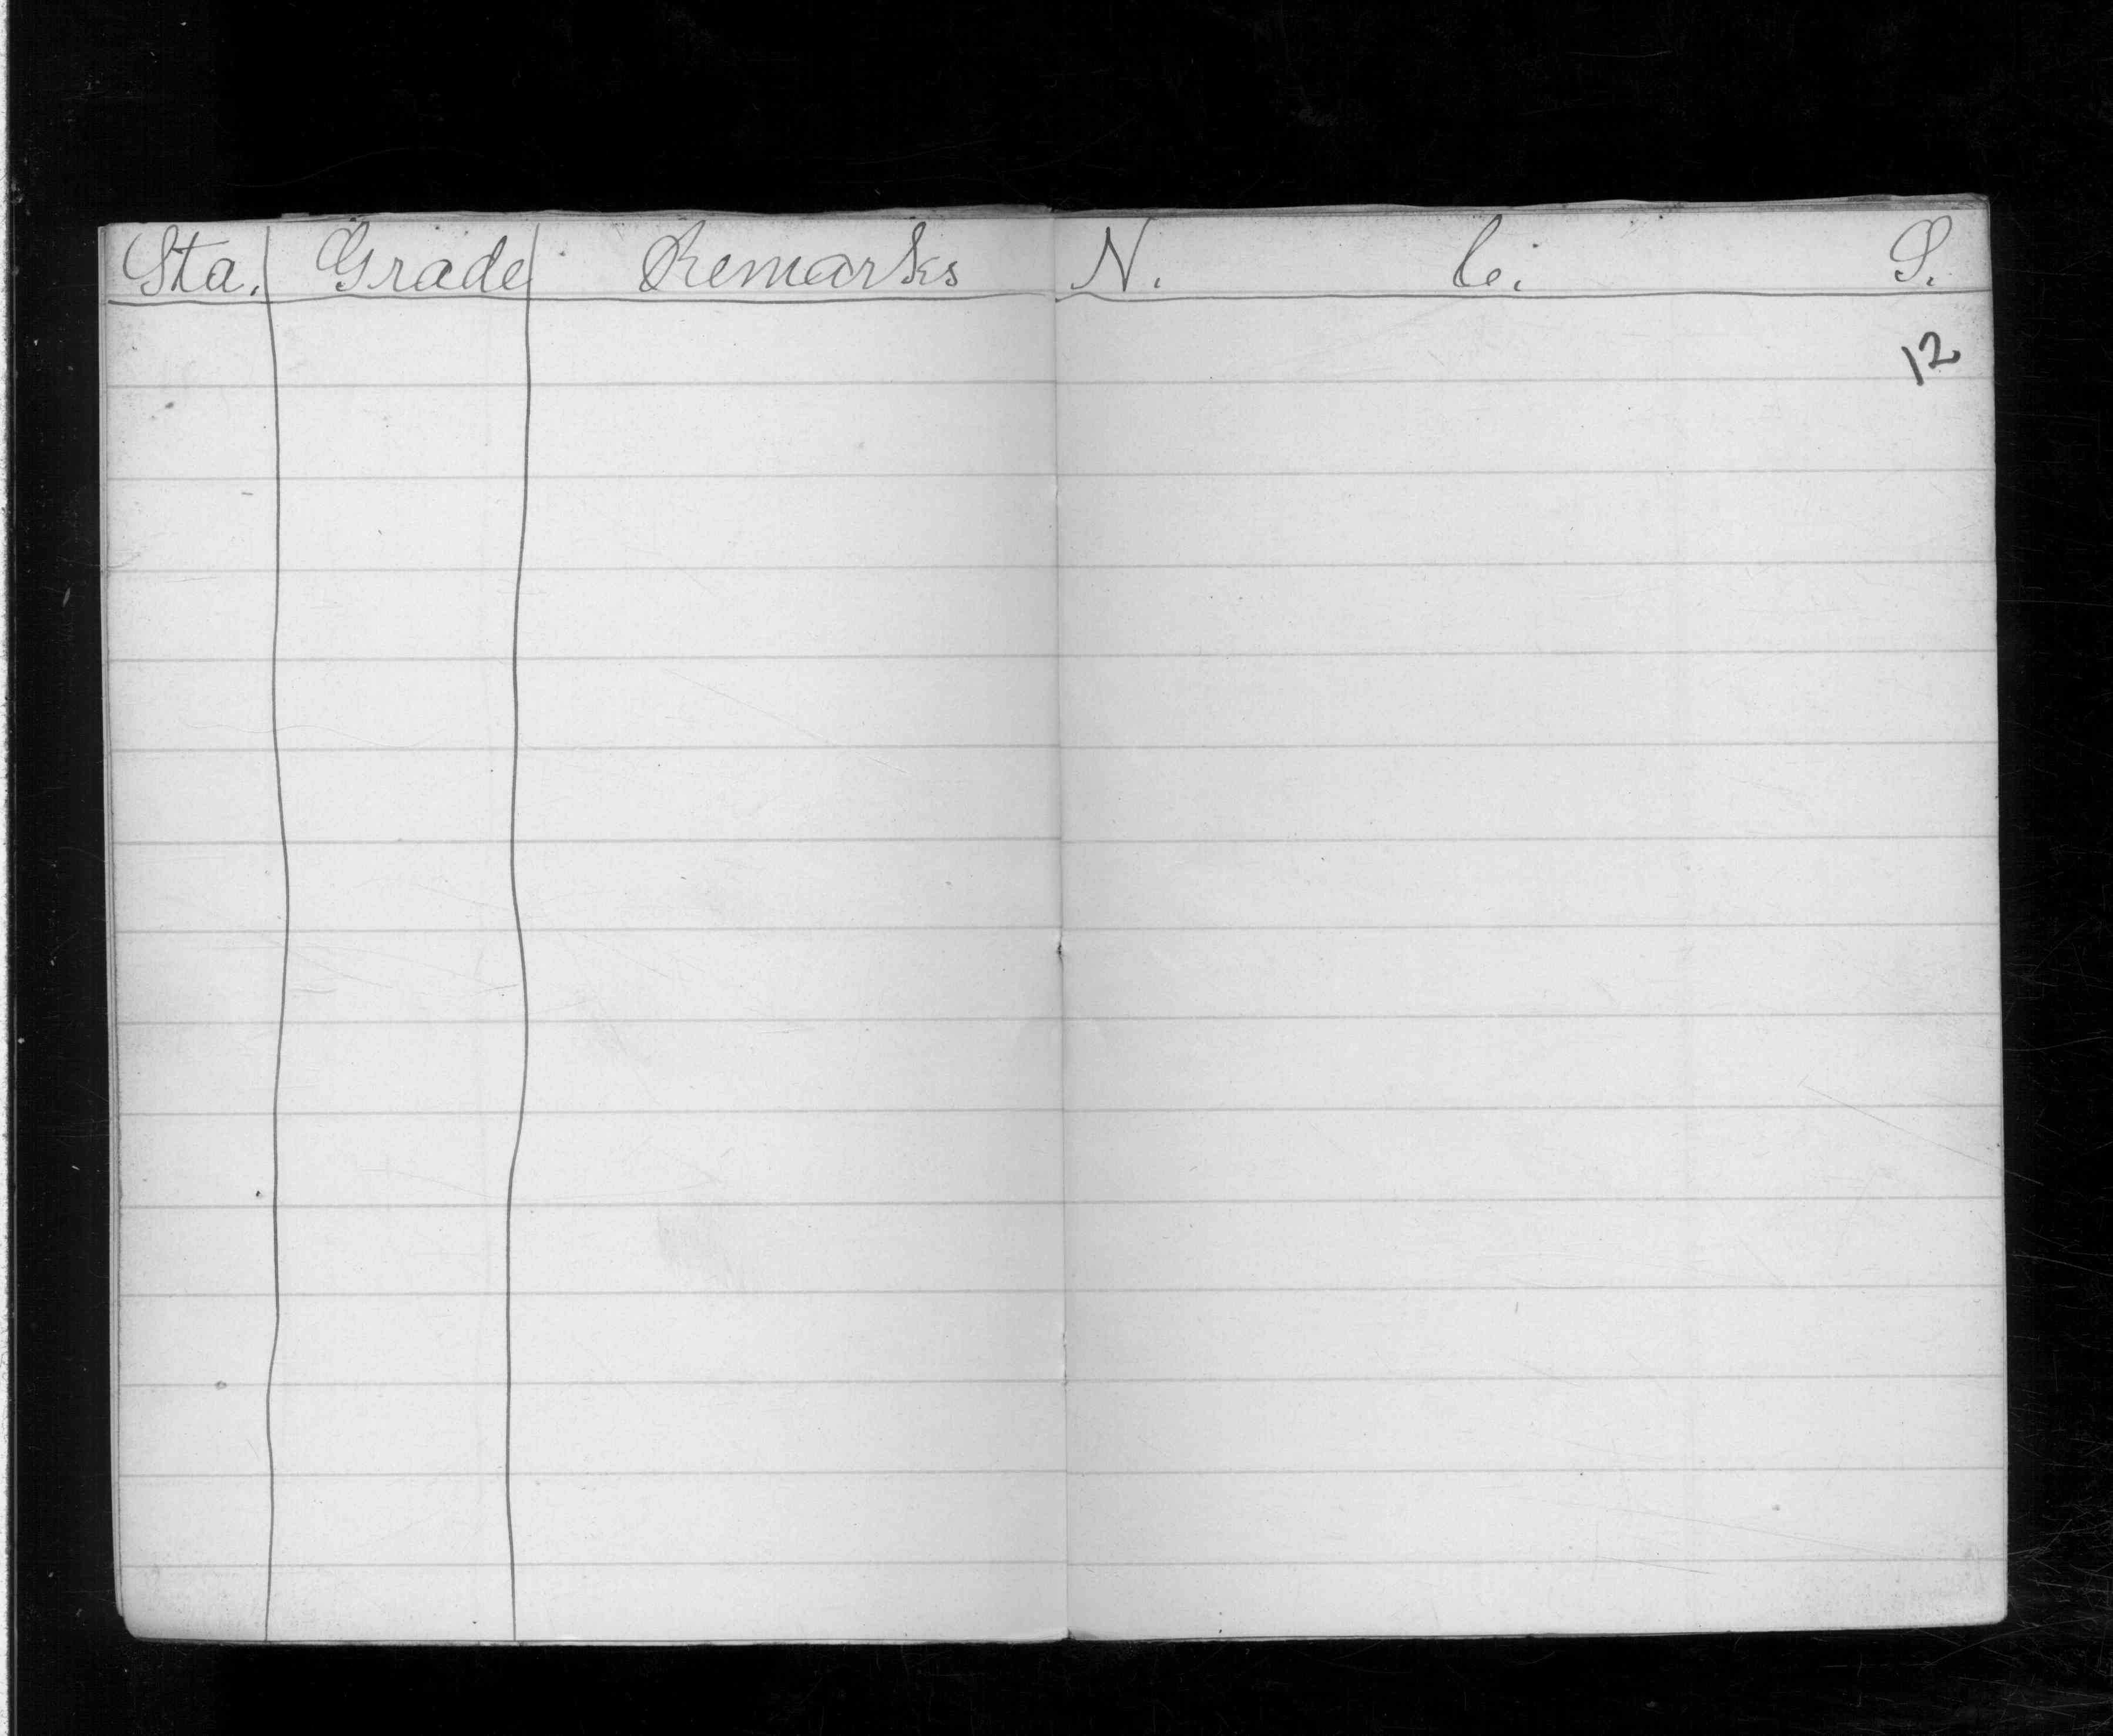 Sta. Grade Remarks N. C. S.
12